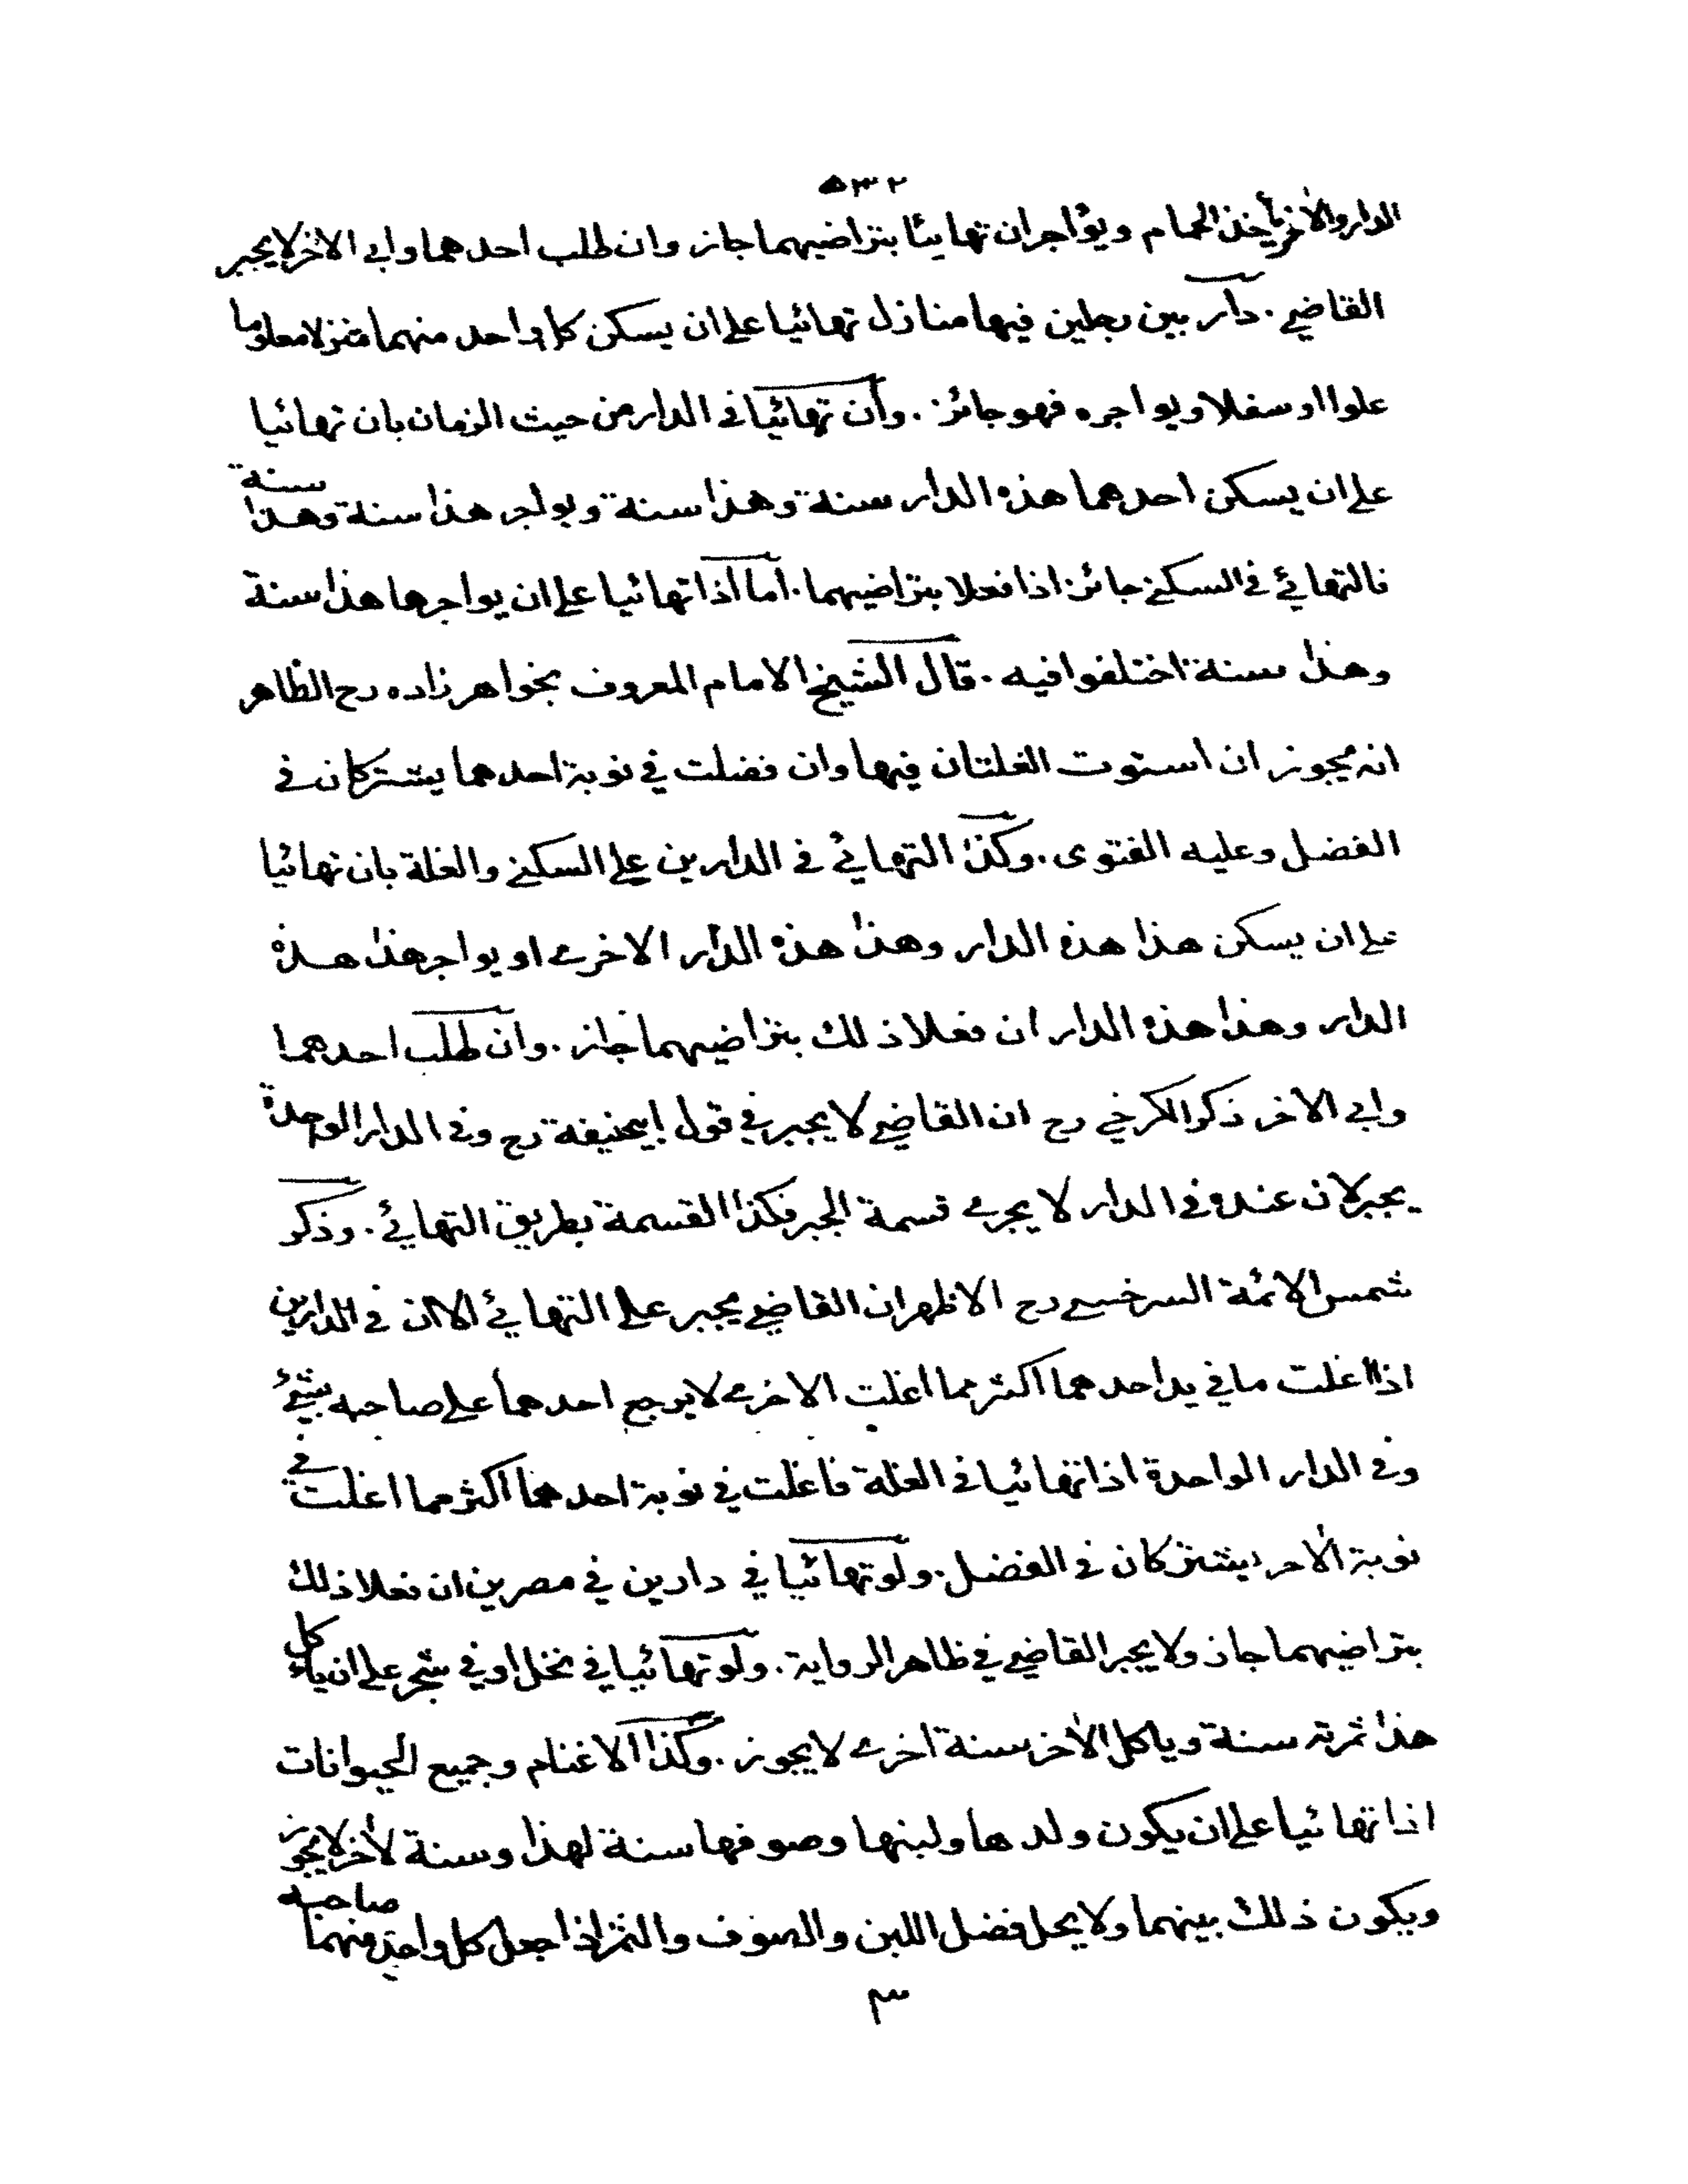 ٥٣٢
الدار والاخر يأخذ الحمام ويؤاجران تهايئا بتراضيهما جاز وان طلب احدهما وابى الاخر لا يجبر
القاضي . دار بين رجلين فيها منازل تهائيا على ان يسكن كل واحد منهما منزلا معلوما
علوا او سفلا ويواجره فهو جائز . وان تهائيا فى الدار من حيث الزمان بان تهائيا
على ان يسكن احدهما هذه الدار سنة وهذا سنة ويواجر هذا سنة وهذا سنة
فالتهائي فى السكنى جائز اذا فعلا بتراضيهما . اما اذا تهائيا على ان يواجرها هذا سنة
وهذا سنة اختلفوا فيه . قال الشيخ الامام المعروف بخواهر زاده رح الظاهر
انه يجوز ان استوت الغلتان فيها وان فضلت في نوبة احدهما يشتركان فى
الفضل وعليه الفتوى . وكذا التهائي فى الدارين على السكنى والغلة بان تهائيا
على ان يسكن هذا هذه الدار وهذا هذه الدار الاخرى او يواجر هذا هذه
الدار وهذا هذه الدار ان فعلا ذلك بتراضيهما جاز . وان طلب احدهما
وابى الاخر ذكر الكرخي رح ان القاضي لا يجبر في قول ابيحنيفة رح وفى الدار الواحدة
يجبر لان عنده فى الدار لا يجرى قسمة الجبر فكذا القسمة بطريق التهائي . وذكر
شمس الائمة السرخسى رح الاظهر ان القاضي يجبر على التهائي الا ان فى الدارين
اذا اغلت ما في يد احدهما اكثر مما اغلت الاخرى لا يرجع احدهما على صاحبه بشئ
وفى الدار الواحدة اذا تهائيا فى الغلة فاغلت في نوبة احدهما اكثر مما اغلت فى
نوبة الاخر يشتركان فى الفضل . ولو تهائيا في دارين في مصرين ان فعلا ذلك
بتراضيهما جاز ولا يجبر القاضي في ظاهر الرواية . ولو تهائيا في نخل او في شجر على ان ياكل
هذا ثمرته سنة وياكل الاخر سنة اخرى لا يجوز . وكذا الاغنام وجميع الحيوانات
اذا تهائيا على ان يكون ولدها ولبنها وصوفها سنة لهذا وسنة لاخر لا يجوز
ويكون ذلك بينهما ولا يحل فضل اللبن والصوف والثمر اذا جعل كل واحد منهما صاحبه
٣